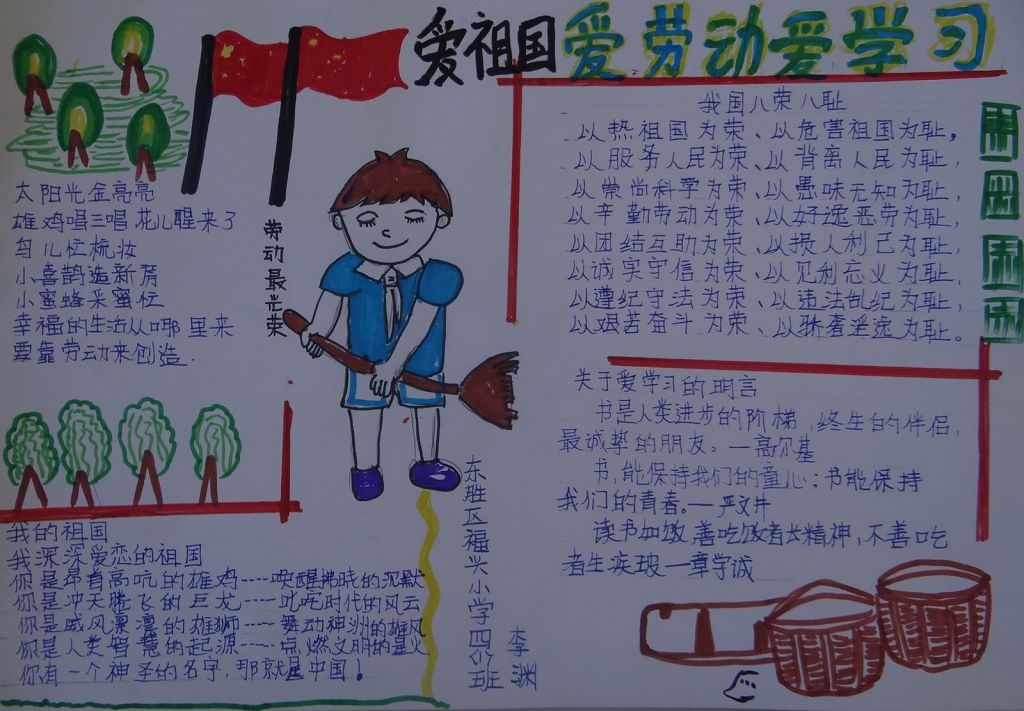 爱祖国爱劳动爱学习
我国八荣八耻
以热祖国为荣、以危害祖国为耻，
以服务人民为荣、以背离人民为耻，
以崇尚科学为荣、以愚昧无知为耻，
以辛勤劳动为荣、以好逸恶劳为耻，
以团结互助为荣、以损人利己为耻，
以诚实守信为荣、以见利忘义为耻，
以遵纪守法为荣、以违法乱纪为耻，
以艰苦奋斗为荣、以骄奢淫逸为耻。
太阳光金亮亮
雄鸡唱三唱花儿醒来了
鸟儿忙梳妆
小喜鹊造新房
小蜜蜂采蜜忙
幸福的生活从哪里来
要靠劳动来创造.
劳动最光荣
关于爱学习的明言
书是人类进步的阶梯，终生的伴侣，
最诚挚的朋友。—高尔基
书，能保持我们的童心；书能保持
我们的青春。—严文井
读书加饭，善吃饭者长精神，不善吃
者生疾 —章学诚
我的祖国
我深深爱恋的祖国
你是昂首高吭的雄鸡----唤醒拂晓的沉默
你是冲天腾飞的巨龙----叱咤时代的风云
你是威风凛凛的雄狮----舞动神洲的雄风
你是人类智慧的起源----点燃文明的星火
你有一个神圣的名字，那就是中国！
东胜区福兴小学四 班
李渊